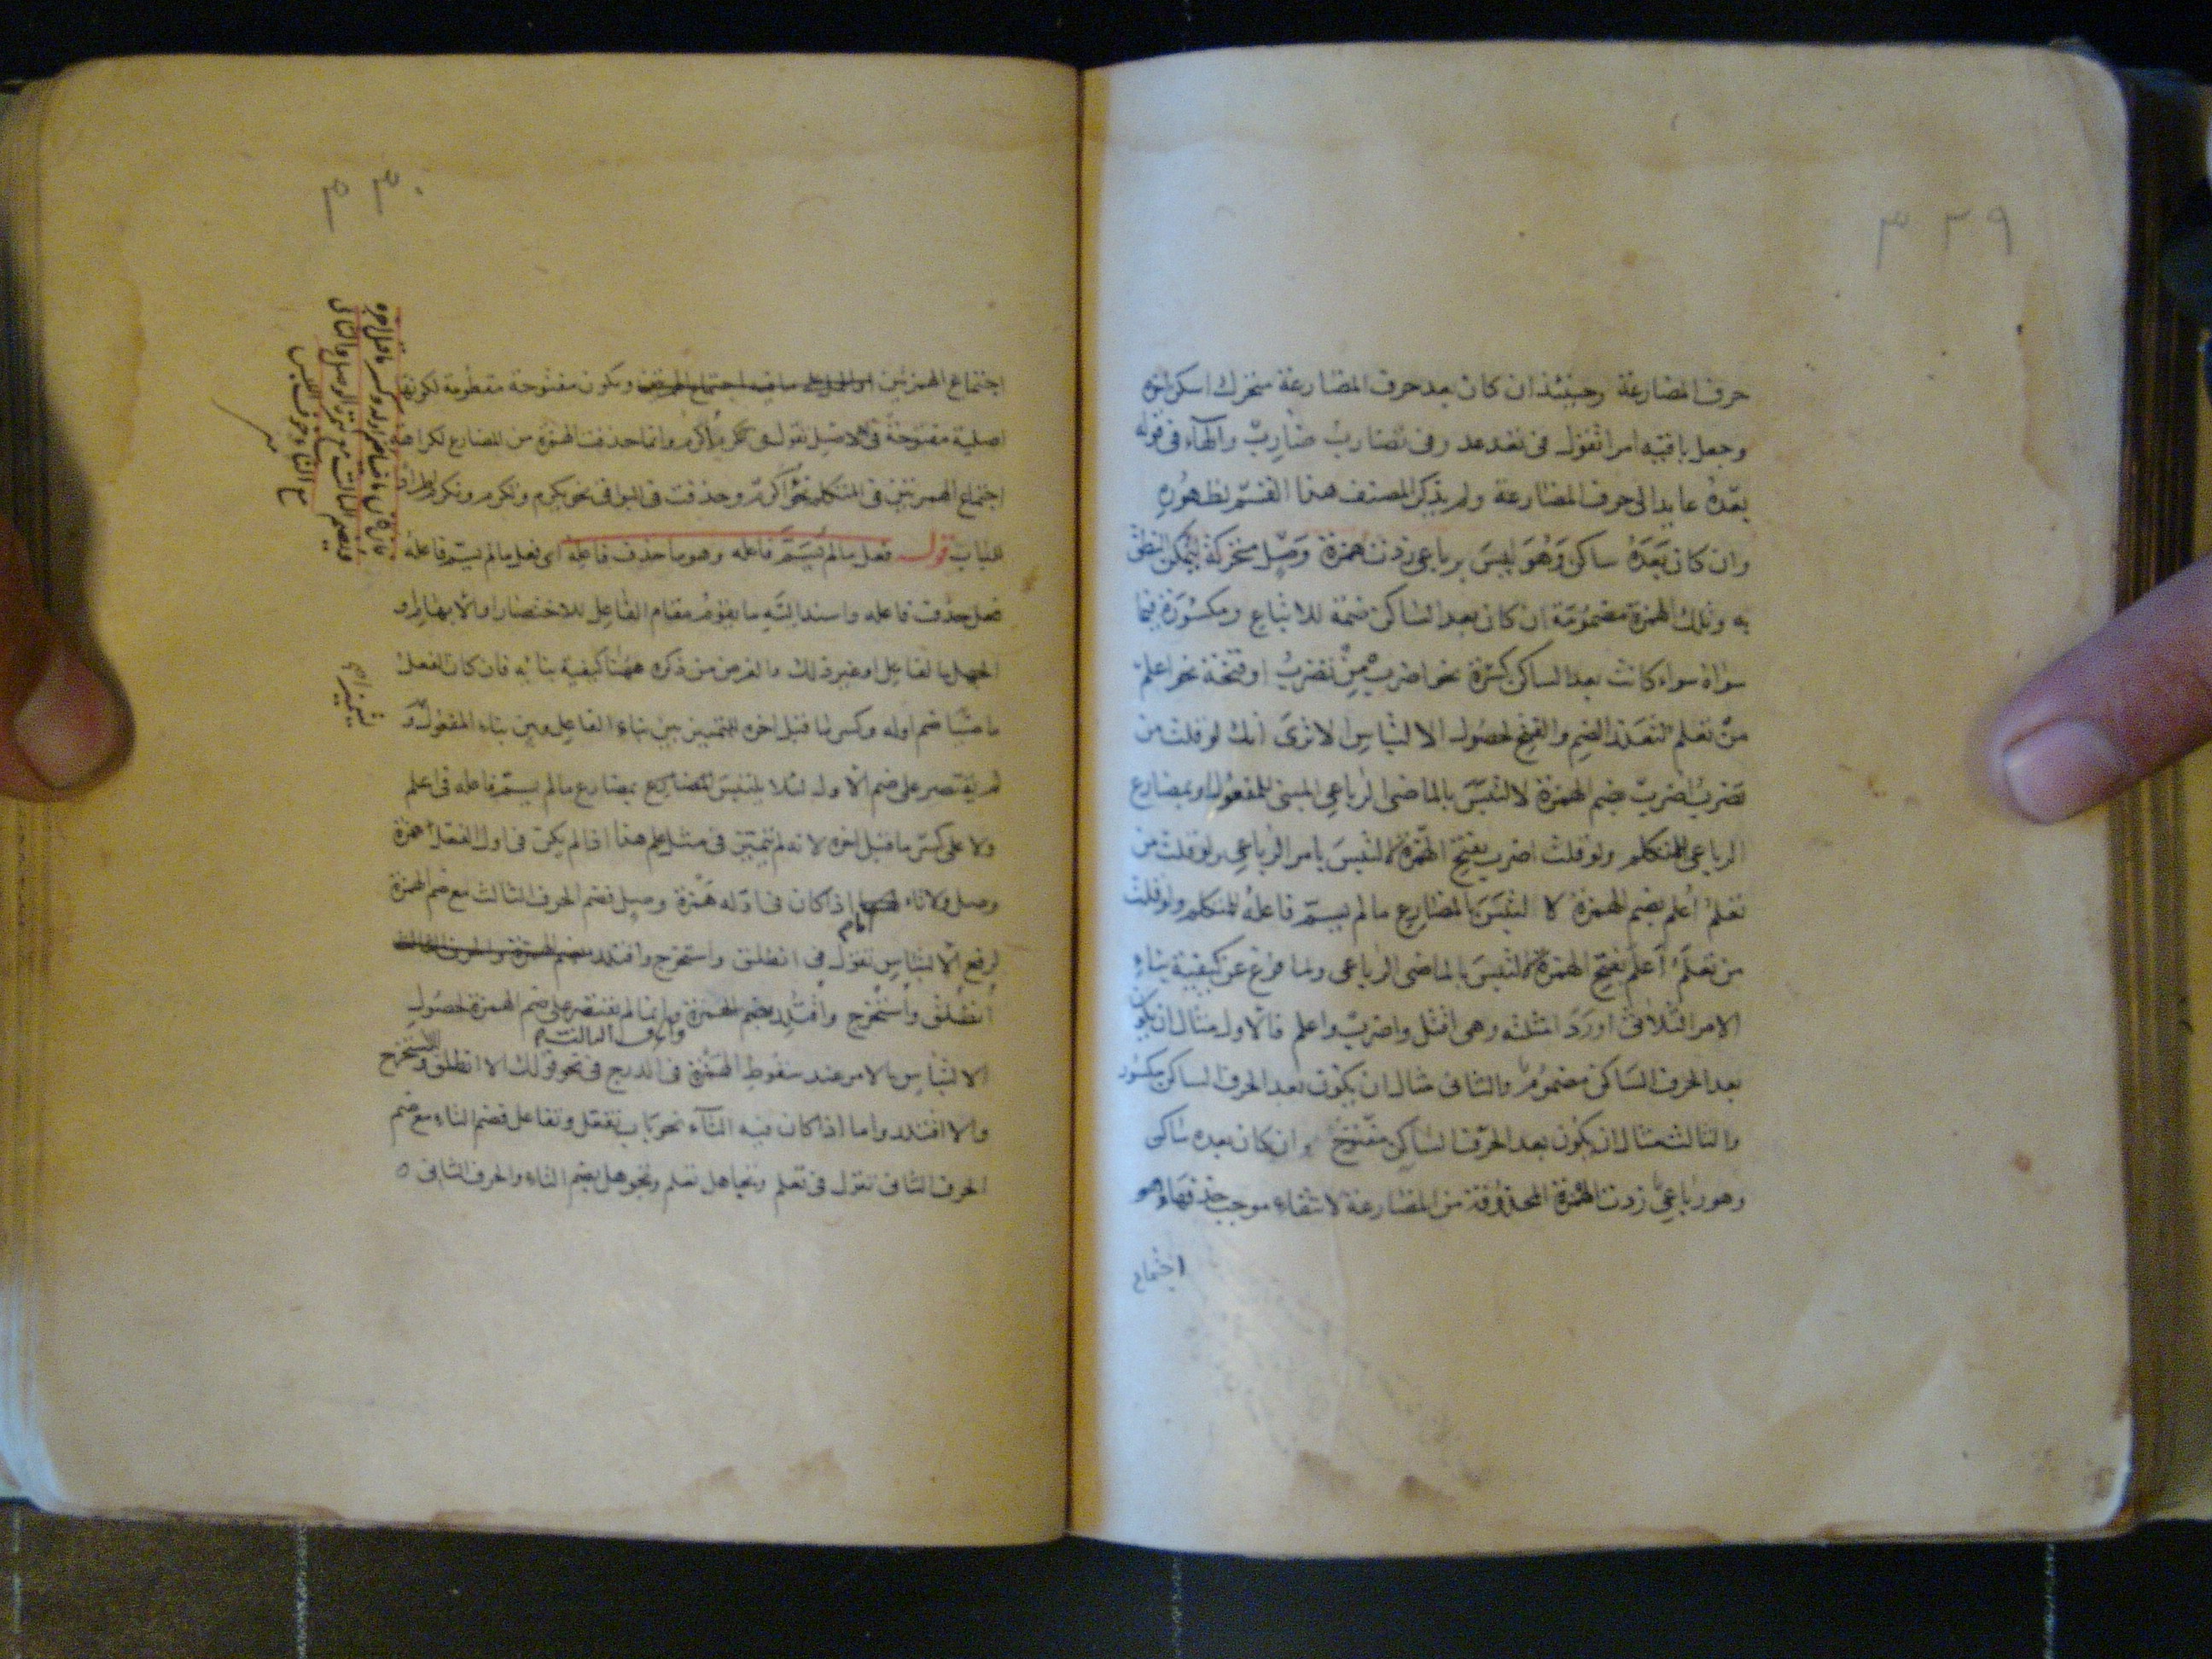 ٣٣٩
حرف المضارعة وحينئذ ان كان بعد حرف المضارعة متحرك اسكن اخره
وجعل باقيه امرا تقول فى تعد عد وفى تضارب ضارب والهاء فى قوله
بعده عايد الى حرف المضارعة ولم يذكر المصنف هذا القسم لظهوره
وان كان بعده ساكن وهو ليس برباعى زدت همزة وصل متحركة ليمكن النطق
به وتلك الهمزة مضمومة ان كان بعد الساكن ضمة للاتباع ومكسورة فيما
سواه سواء كانت بعد الساكن كسرة نحو اضرب من تضرب او فتحة نحو اعلم
من تعلم لتعذر الضم والفتح لحصول الالتباس الا ترى انك لو قلت من
تضرب اضرب بضم الهمزة لالتبس بالماضى الرباعى المبنى للمفعول او بمضارع
الرباعى للمتكلم ولو قلت اضرب بفتح الهمزة لالتبس بامر الرباعى ولو قلت من
تعلم اعلم بضم الهمزة لالتبس بالمضارع ما لم يسم فاعله للمتكلم ولو قلت
من تعلم اعلم بفتح الهمزة لالتبس بالماضى الرباعى ولما فرغ عن كيفية بناء
الامر الثلاثى اورد امثلته وهى اقتل واضرب واعلم فالاول مثال ان يكون
بعد الحرف الساكن مضموم والثانى مثال ان يكون بعد الحرف الساكن مكسور
والثالث مثال ان يكون بعد الحرف الساكن مفتوح وان كان بعده ساكن
وهو رباعى زدت الهمزة المحذوفة من المضارعة لانتفاء موجب حذفها وهو
اجتماع
اجتماع الهمزتين وتكون مفتوحة مقطوعة لكونها
اصلية مفتوحة فى الاصل تقول فى تكرم اكرم وانما حذفت الهمزة من المضارع لكراهة
اجتماع الهمزتين فى المتكلم نحو اكرم وحذفت فى البواقى نحو يكرم وتكرم ونكرم
للباب قوله فعل ما لم يسم فاعله وهو ما حذف فاعله اى فعل ما لم يسم فاعله
فعل حذف فاعله واسند اليه ما يقوم مقام الفاعل للاختصار او الابهام او
الجهل بالفاعل او غير ذلك والغرض من ذكره ههنا كيفية بنائه فان كان الفعل
ماضيا ضم اوله وكسر ما قبل اخره للتمييز بين بناء الفاعل وبين بناء المفعول و
لم يقتصر على ضم الاول لئلا يلتبس المضارع بمضارع ما لم يسم فاعله فى اعلم
ولا على كسر ما قبل اخره لانه لم يتميز فى مثل علم هذا اذا لم يكن فى اول الفعل همزة
وصل ولا تاء اما اذا كان فى اوله همزة وصل فضم الحرف الثالث مع ضم الهمزة
لرفع الالتباس تقول فى انطلق واستخرج واقتدر
انطلق واستخرج واقتدر بضم الهمزة والحرف الثالث وانما لم يقتصر على ضم الهمزة لحصول
الالتباس بالامر عند سقوط الهمزة فى الدرج فى نحو قولك الا انطلق والا استخرج
والا اقتدر واما اذا كان فيه التاء نحو باب تفعل وتفاعل فضم التاء مع ضم
الحرف الثانى تقول فى تعلم وتجاهل تعلم وتجوهل بضم التاء والحرف الثانى